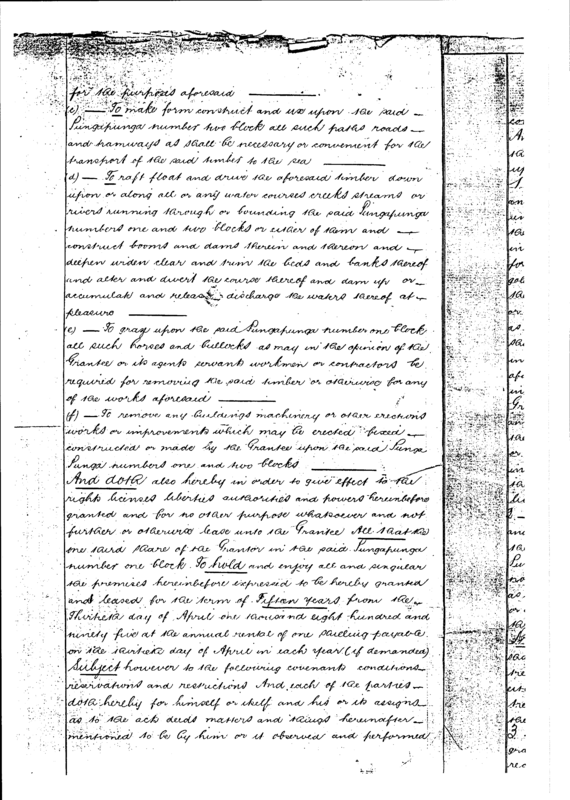 for the purposes aforesaid
(c) — To make form construct and use upon the said
Pungapunga number two block all such paths roads
and tramways as shall be necessary or convenient for the
transport of the said timber to the sea
(d) — To raft float and drive the aforesaid timber down
upon or along all or any water courses creeks streams or
rivers running through or bounding the said Pungapunga
numbers one and two blocks or either of them and
construct booms and dams therein and thereon and
deepen widen clear and trim the beds and banks thereof
and alter and divert the course thereof and dam up or
accumulate and release discharge the waters thereof at
pleasure
(e) — To graze upon the said Pungapunga number one block
all such horses and bullocks as may in the opinion of the
Grantee or its agents servants workmen or contractors be
required for removing the said timber or otherwise for any
of the works aforesaid
(f) — To remove any buildings machinery or other erections
works or improvements which may be erected fixed
constructed or made by the Grantee upon the said Punga
Punga numbers one and two blocks
And doth also hereby in order to give effect to the
rights licenses liberties authorities and powers hereinbefore
granted and for no other purpose whatsoever and not
further or otherwise lease unto the Grantee All that the
one third share of the Grantor in the said Pungapunga
number one block. To hold and enjoy all and singular
the premises hereinbefore expressed to be hereby granted
and leased for the term of Fifteen years from the
Thirtieth day of April one thousand eight hundred and
ninety five at the annual rental of one shilling payable
on the thirtieth day of April in each year (if demanded)
Subject however to the following covenants conditions
reservations and restrictions And each of the parties
doth hereby for himself or itself and his or its assigns
as to the acts deeds matters and things hereinafter
mentioned to be by him or it observed and performed